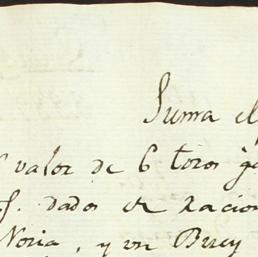 Suma el
valor de 6 toros
dados en racion
Noria, y un Buey